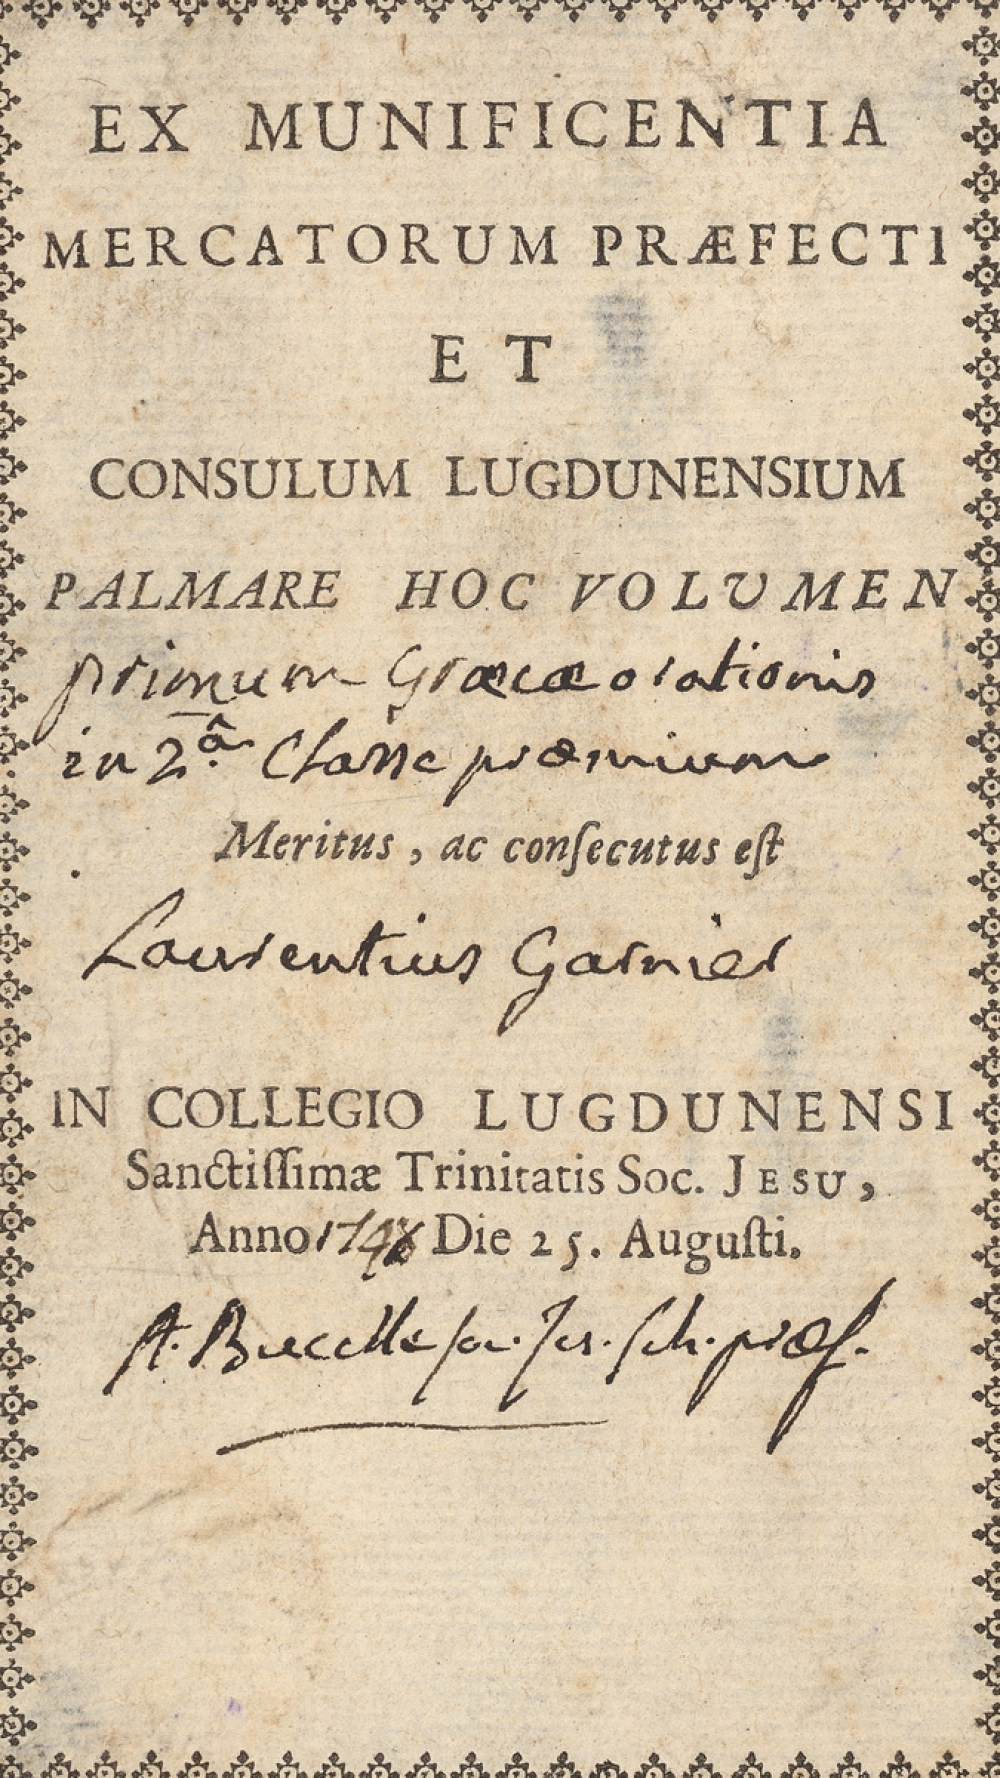 EX MUNIFICENTIA
MERCATORUM PRÆFECTI
ET
CONSULUM LUGDUNENSIUM
PALMARE HOC VOLUMEN
primum Græcæ orationis
in 2.â Classe præmium
Meritus, ac conſecutus eſt
Laurentius Garnier
IN COLLEGIO LUGDUNENSI
Sanctiſſimæ Trinitatis Soc. JESU,
Anno Die 25. Auguſti.
A. soc. Jes. sch. præf.